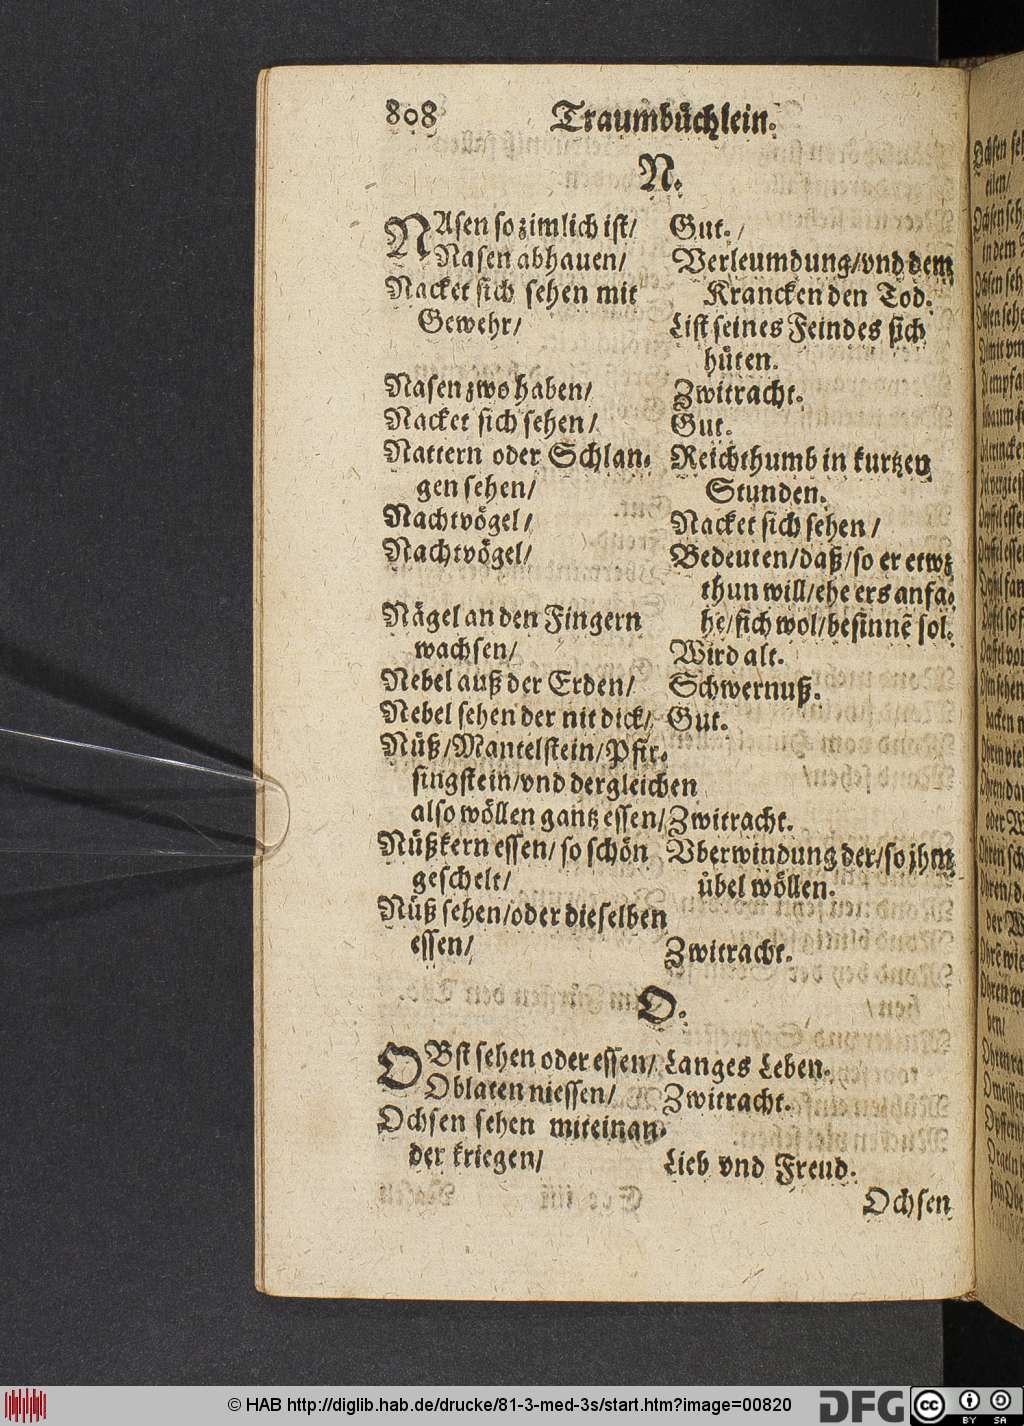 808 Traumbüchlein.
N.
NAsen so zimlich ist/ Gut. /
Nasen abhauen/ Verleumdung/vnd dem
Nacket sich sehen mit Krancken den Tod.
Gewehr/ List seines Feindes sich
hüten.
Nasen zwo haben/ Zwitracht.
Nacket sich sehen/ Gut.
Nattern oder Schlan- Reichthumb in kurtzen
gen sehen/ Stunden.
Nachtvögel/ Nacket sich sehen/
Nachtvögel/ Bedeuten/daß/so er etwz
thun will/ehe ers anfa-
Nägel an den Fingern he/sich wol/besinnē sol.
wachsen/ Wird alt.
Nebel auß der Erden/ Schwernuß.
Nebel sehen der nit dick/ Gut.
Nüß/Mantelstein/Pfir-
singstein/vnd dergleichen
also wöllen gantz essen/ Zwitracht.
Nüßkern essen/ so schön Vberwindung der/so jhm
geschelt/ übel wöllen.
Nüß sehen/oder dieselben
essen/ Zwitracht.
O.
OBst sehen oder essen/ Langes Leben.
Oblaten niessen/ Zwitracht.
Ochsen sehen miteinan-
der kriegen/ Lieb vnd Freud.
Ochsen
© HAB http://diglib.hab.de/drucke/81-3-med-3s/start.htm?image=00820
DFG
cc
BY SA